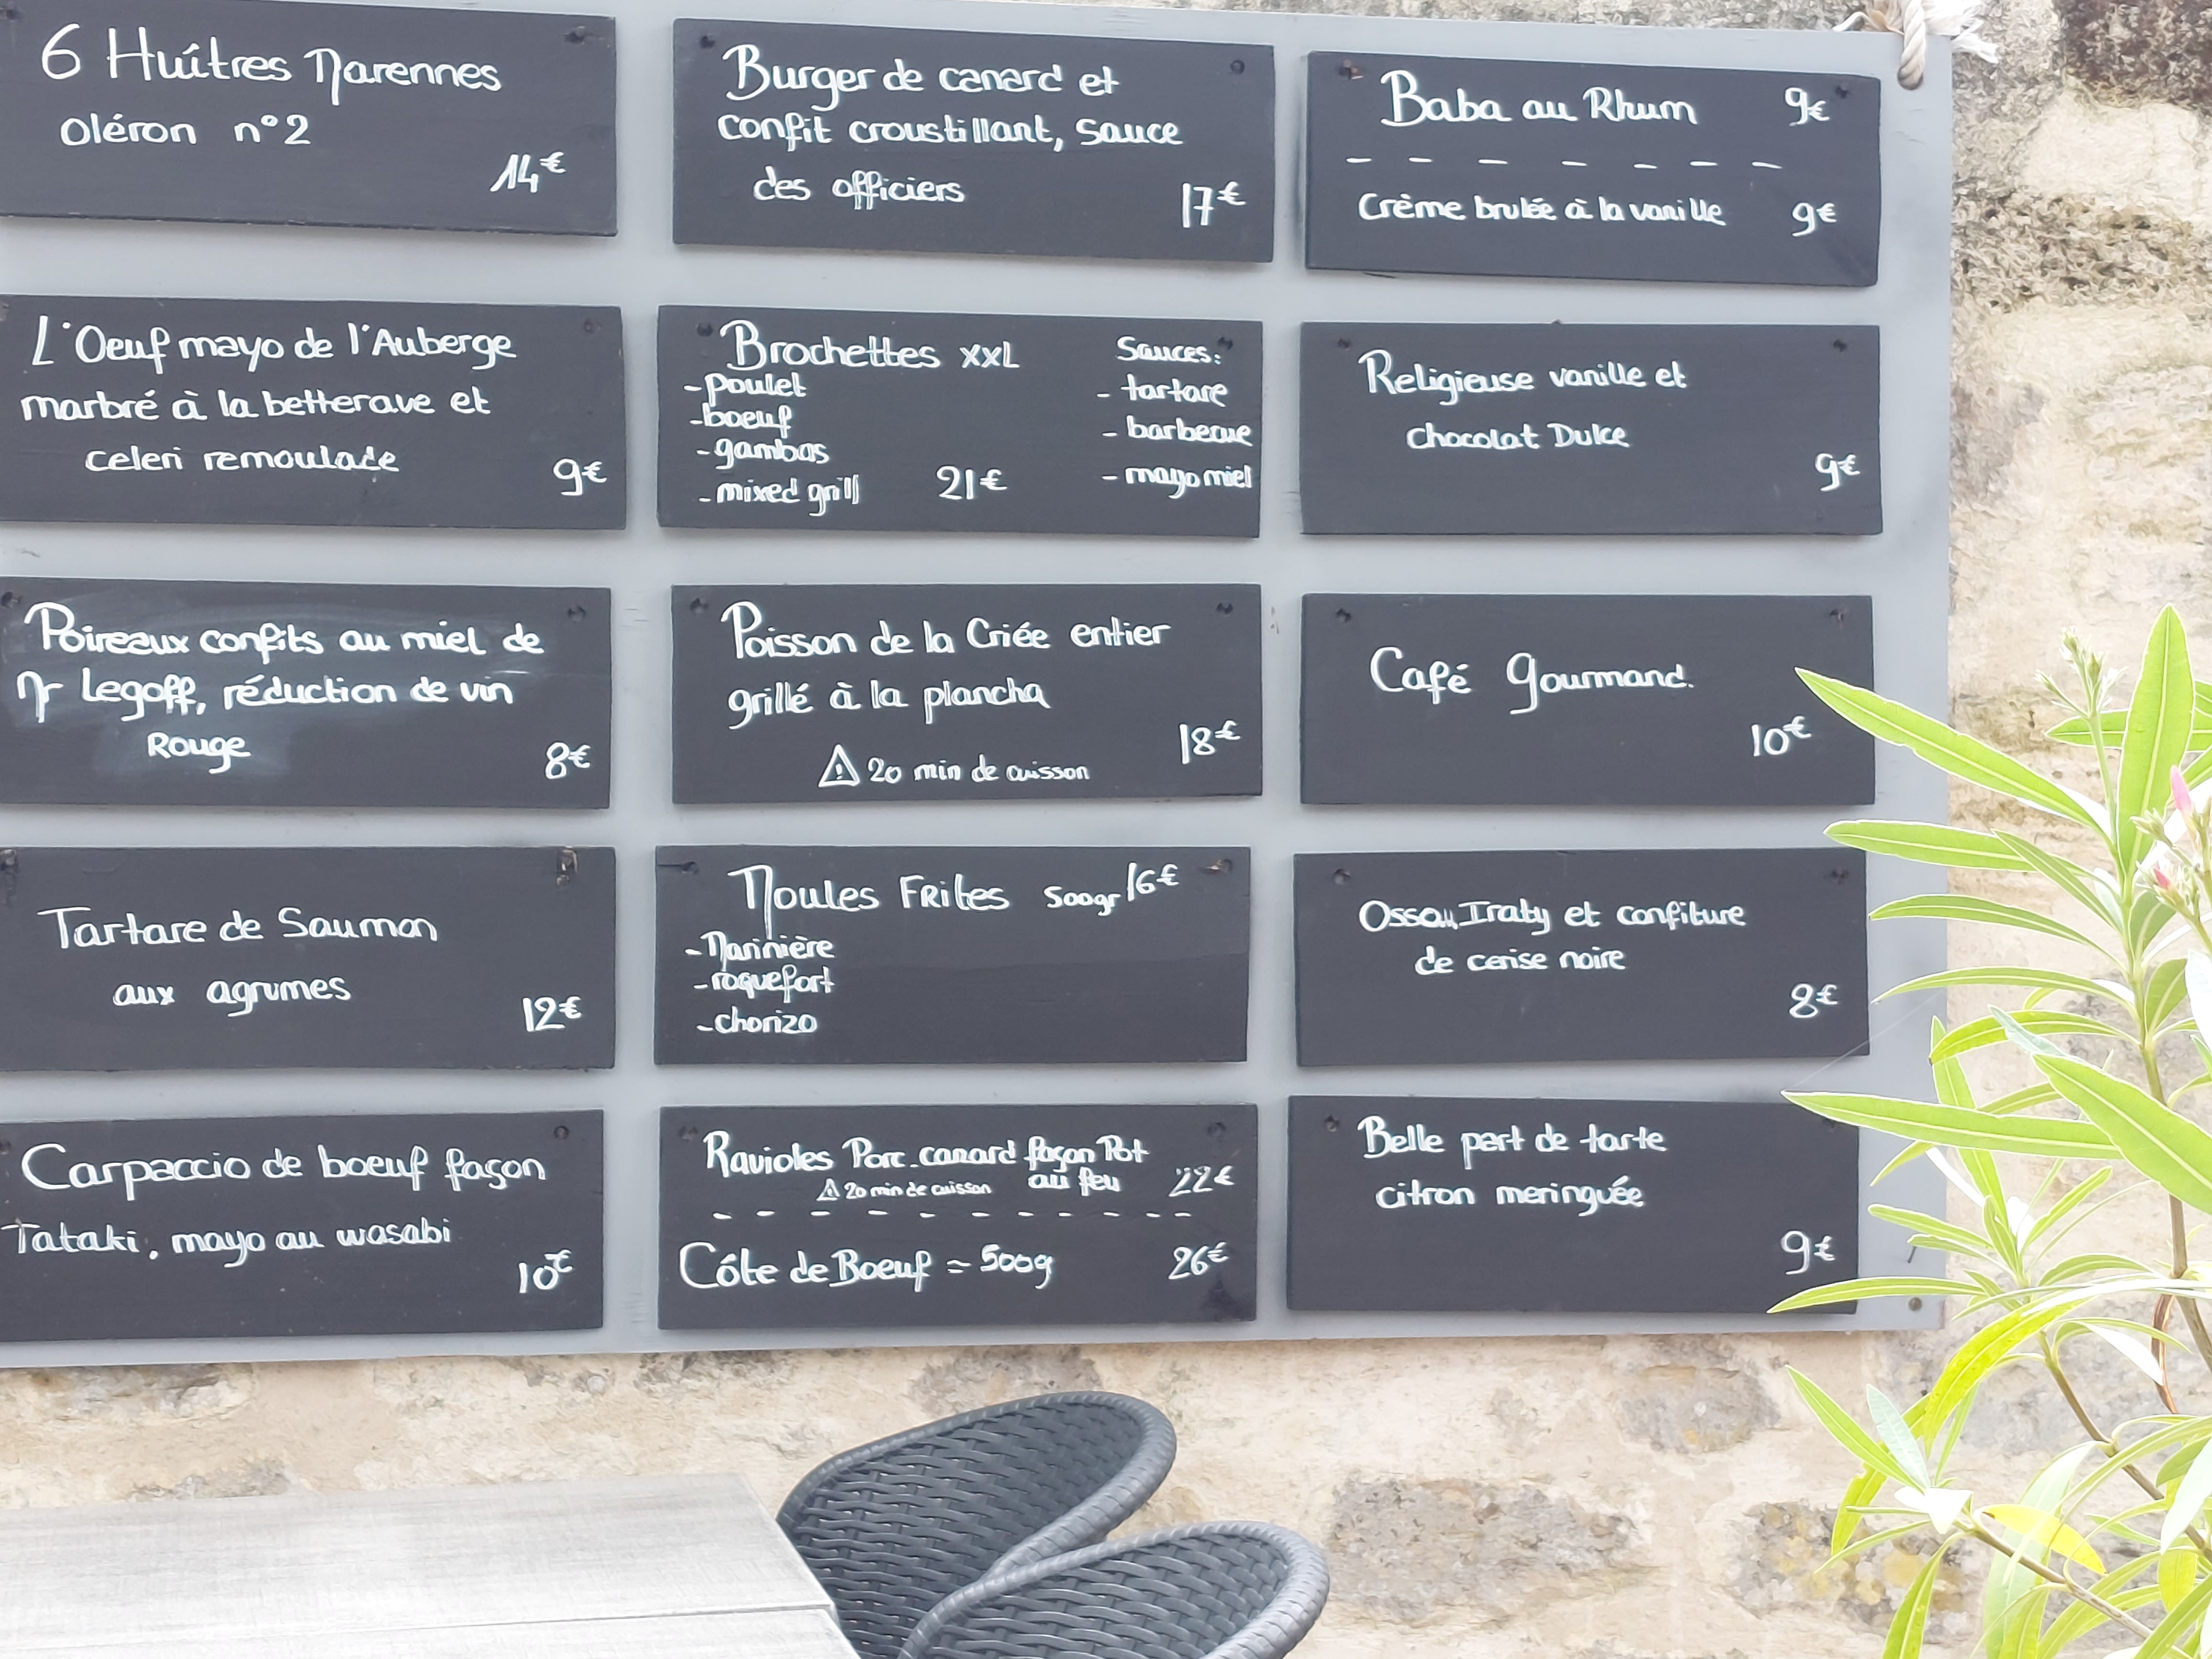 6 Huîtres Marennes
Oléron n°2
14€
L'Oeuf mayo de l'Auberge
marbré à la betterave et
celeri remoulade
9€
Poireaux confits au miel de
Mr Legoff, réduction de vin
Rouge
8€
Tartare de Saumon
aux agrumes
12€
Carpaccio de boeuf façon
Tataki, mayo au wasabi
10€
Burger de canard et
confit croustillant, sauce
des officiers
17€
Brochettes XXL
-poulet
-boeuf
-gambas
-mixed grill
21€
Sauces:
- tartare
- barbecue
- mayo miel
Poisson de la Criée entier
grillé à la plancha
18€
⚠ 20 min de cuisson
Moules Frites 500gr 16€
-Marinière
-roquefort
-chorizo
Ravioles Porc-canard façon Pot
au feu 22€
⚠ 20 min de cuisson
Côte de Boeuf = 500g 26€
Baba au Rhum 9€
Crème brulée à la vanille 9€
Religieuse vanille et
chocolat Dulce
9€
Café Gourmand.
10€
Ossau Iraty et confiture
de cerise noire
8€
Belle part de tarte
citron meringuée
9€